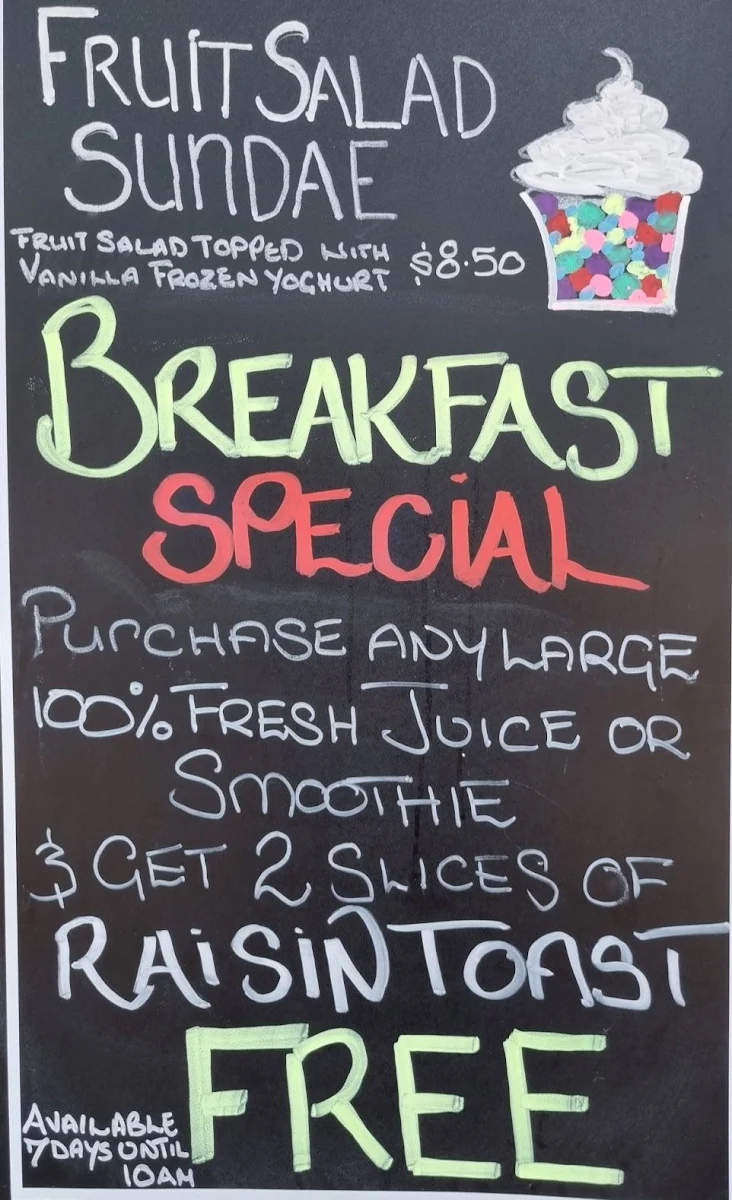 FRUIT SALAD
SUNDAE
FRUIT SALAD TOPPED WITH
VANILLA FROZEN YOGHURT $8.50
BREAKFAST
SPECIAL
PURCHASE ANY LARGE
100% FRESH JUICE OR
SMOOTHIE
& GET 2 SLICES OF
RAISIN TOAST
FREE
AVAILABLE
7 DAYS UNTIL
10AM